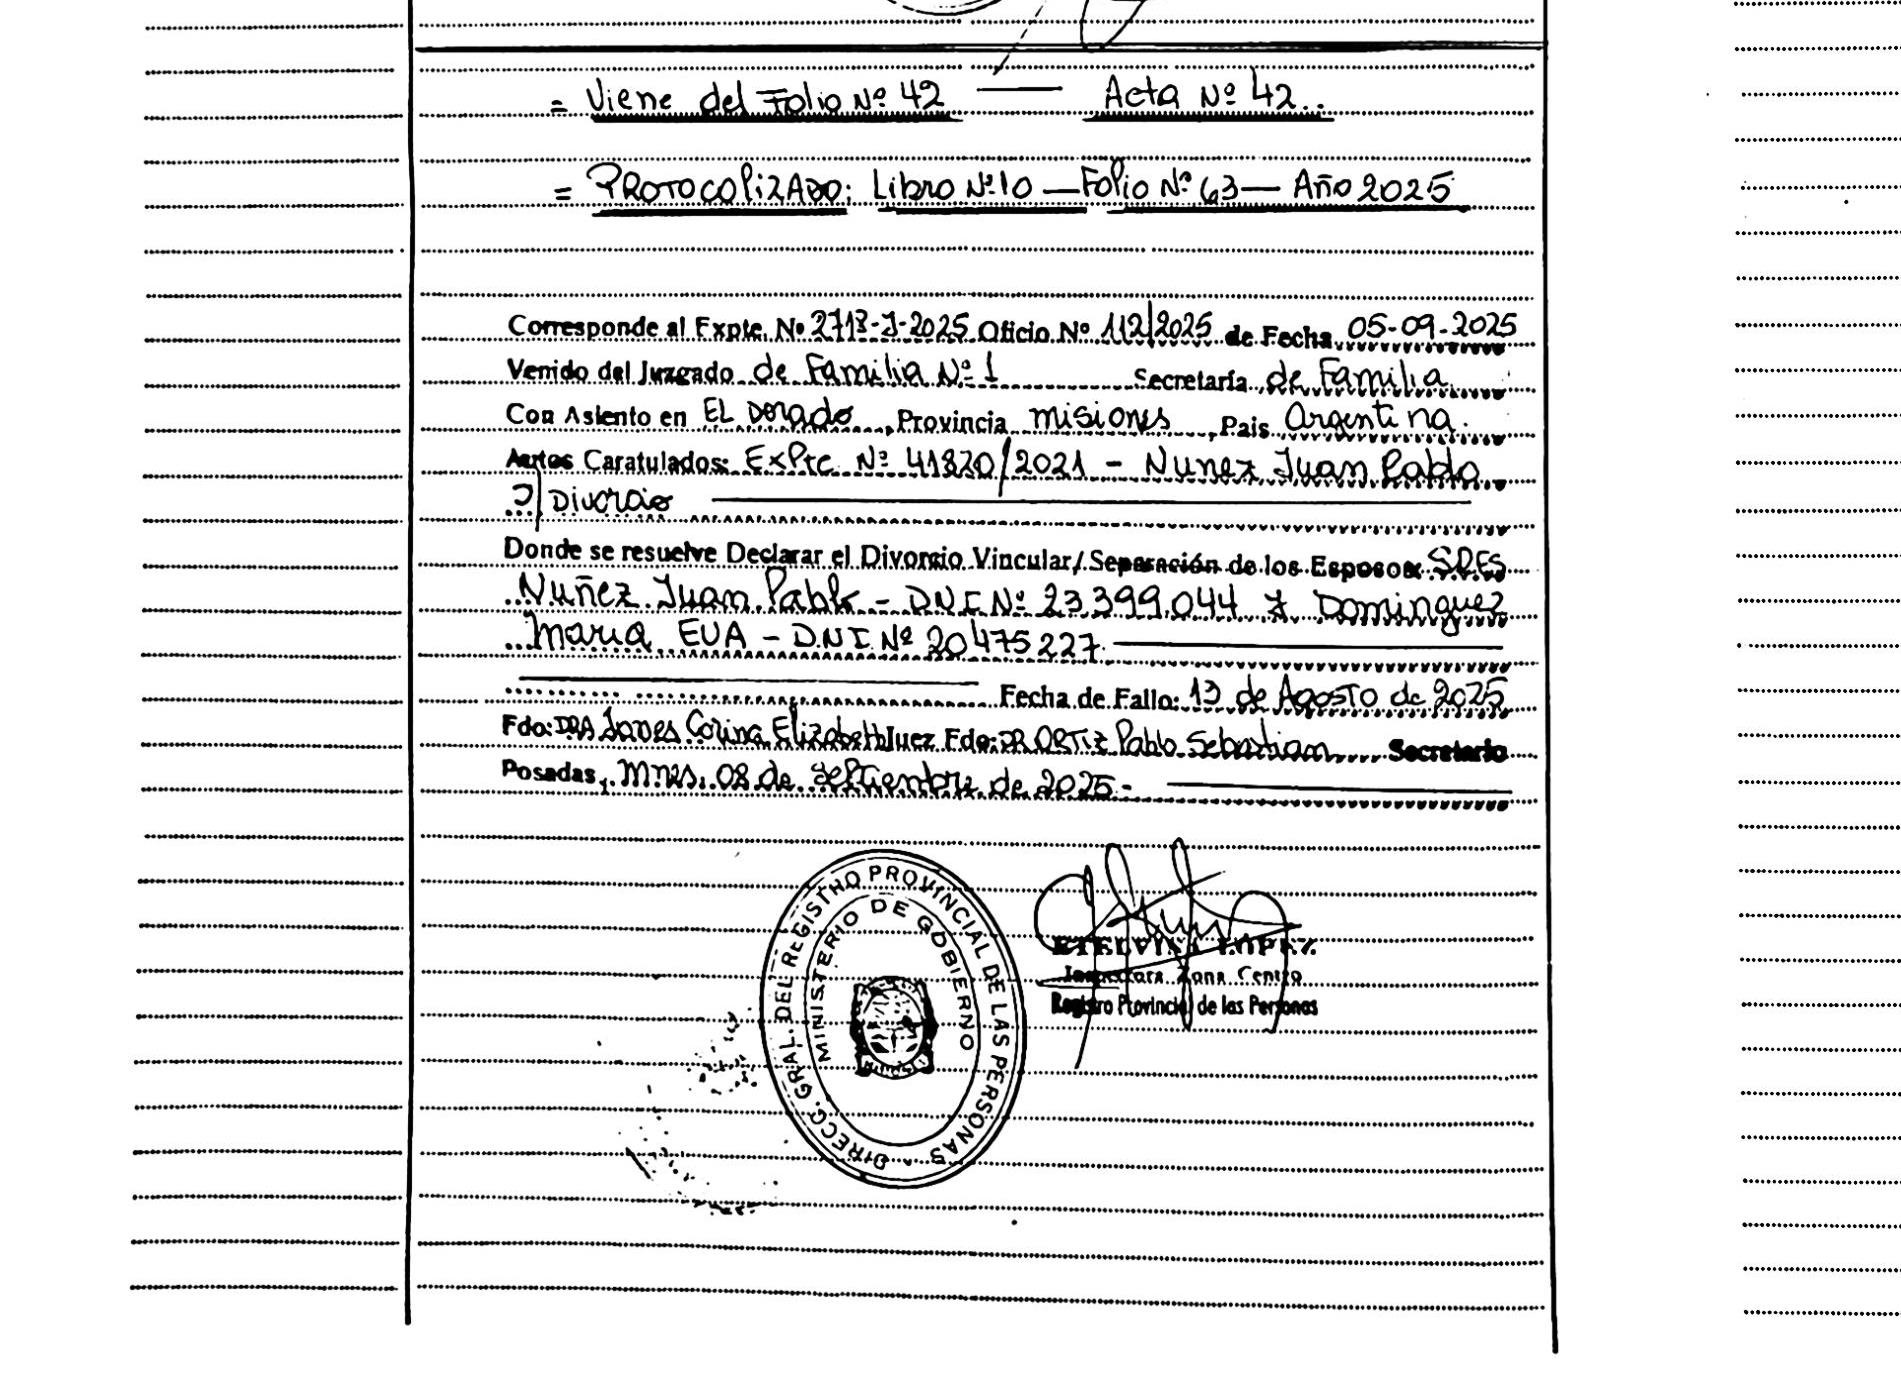 = Viene del Folio Nº 42 — Acta Nº 42..
= PROTOCOLIZADO: Libro Nº 10 — Folio Nº 63 — Año 2025
Corresponde al Expte. Nº 2718-J-2025 Oficio Nº 112/2025 de Fecha 05-09-2025
Venido del Juzgado de Familia Nº 1 Secretaría de Familia
Con Asiento en EL Dorado, Provincia misiones, Pais Argentina.
Autos Caratulados: ExPte Nº 41820/2021 - Nunez Juan Pablo
S/ Divorcio
Donde se resuelve Declarar el Divorcio Vincular/Separación de los Esposos SRES
Nuñez Juan Pablo - DNI Nº 23.399.044 y Dominguez
Maria EVA - D.N.I Nº 20475227
Fecha de Fallo: 13 de Agosto de 2025
Fdo: DRA Corina Elizabeth Juez Fdo: DR ORTIZ Pablo Sebastian Secretario
Posadas, Mnes, 08 de Septiembre de 2025.-
DIRECC. GRAL. DEL REGISTRO PROVINCIAL DE LAS PERSONAS
MINISTERIO DE GOBIERNO
ETELVINA LOPEZ
Inspectora Zona Centro
Registro Provincial de las Personas